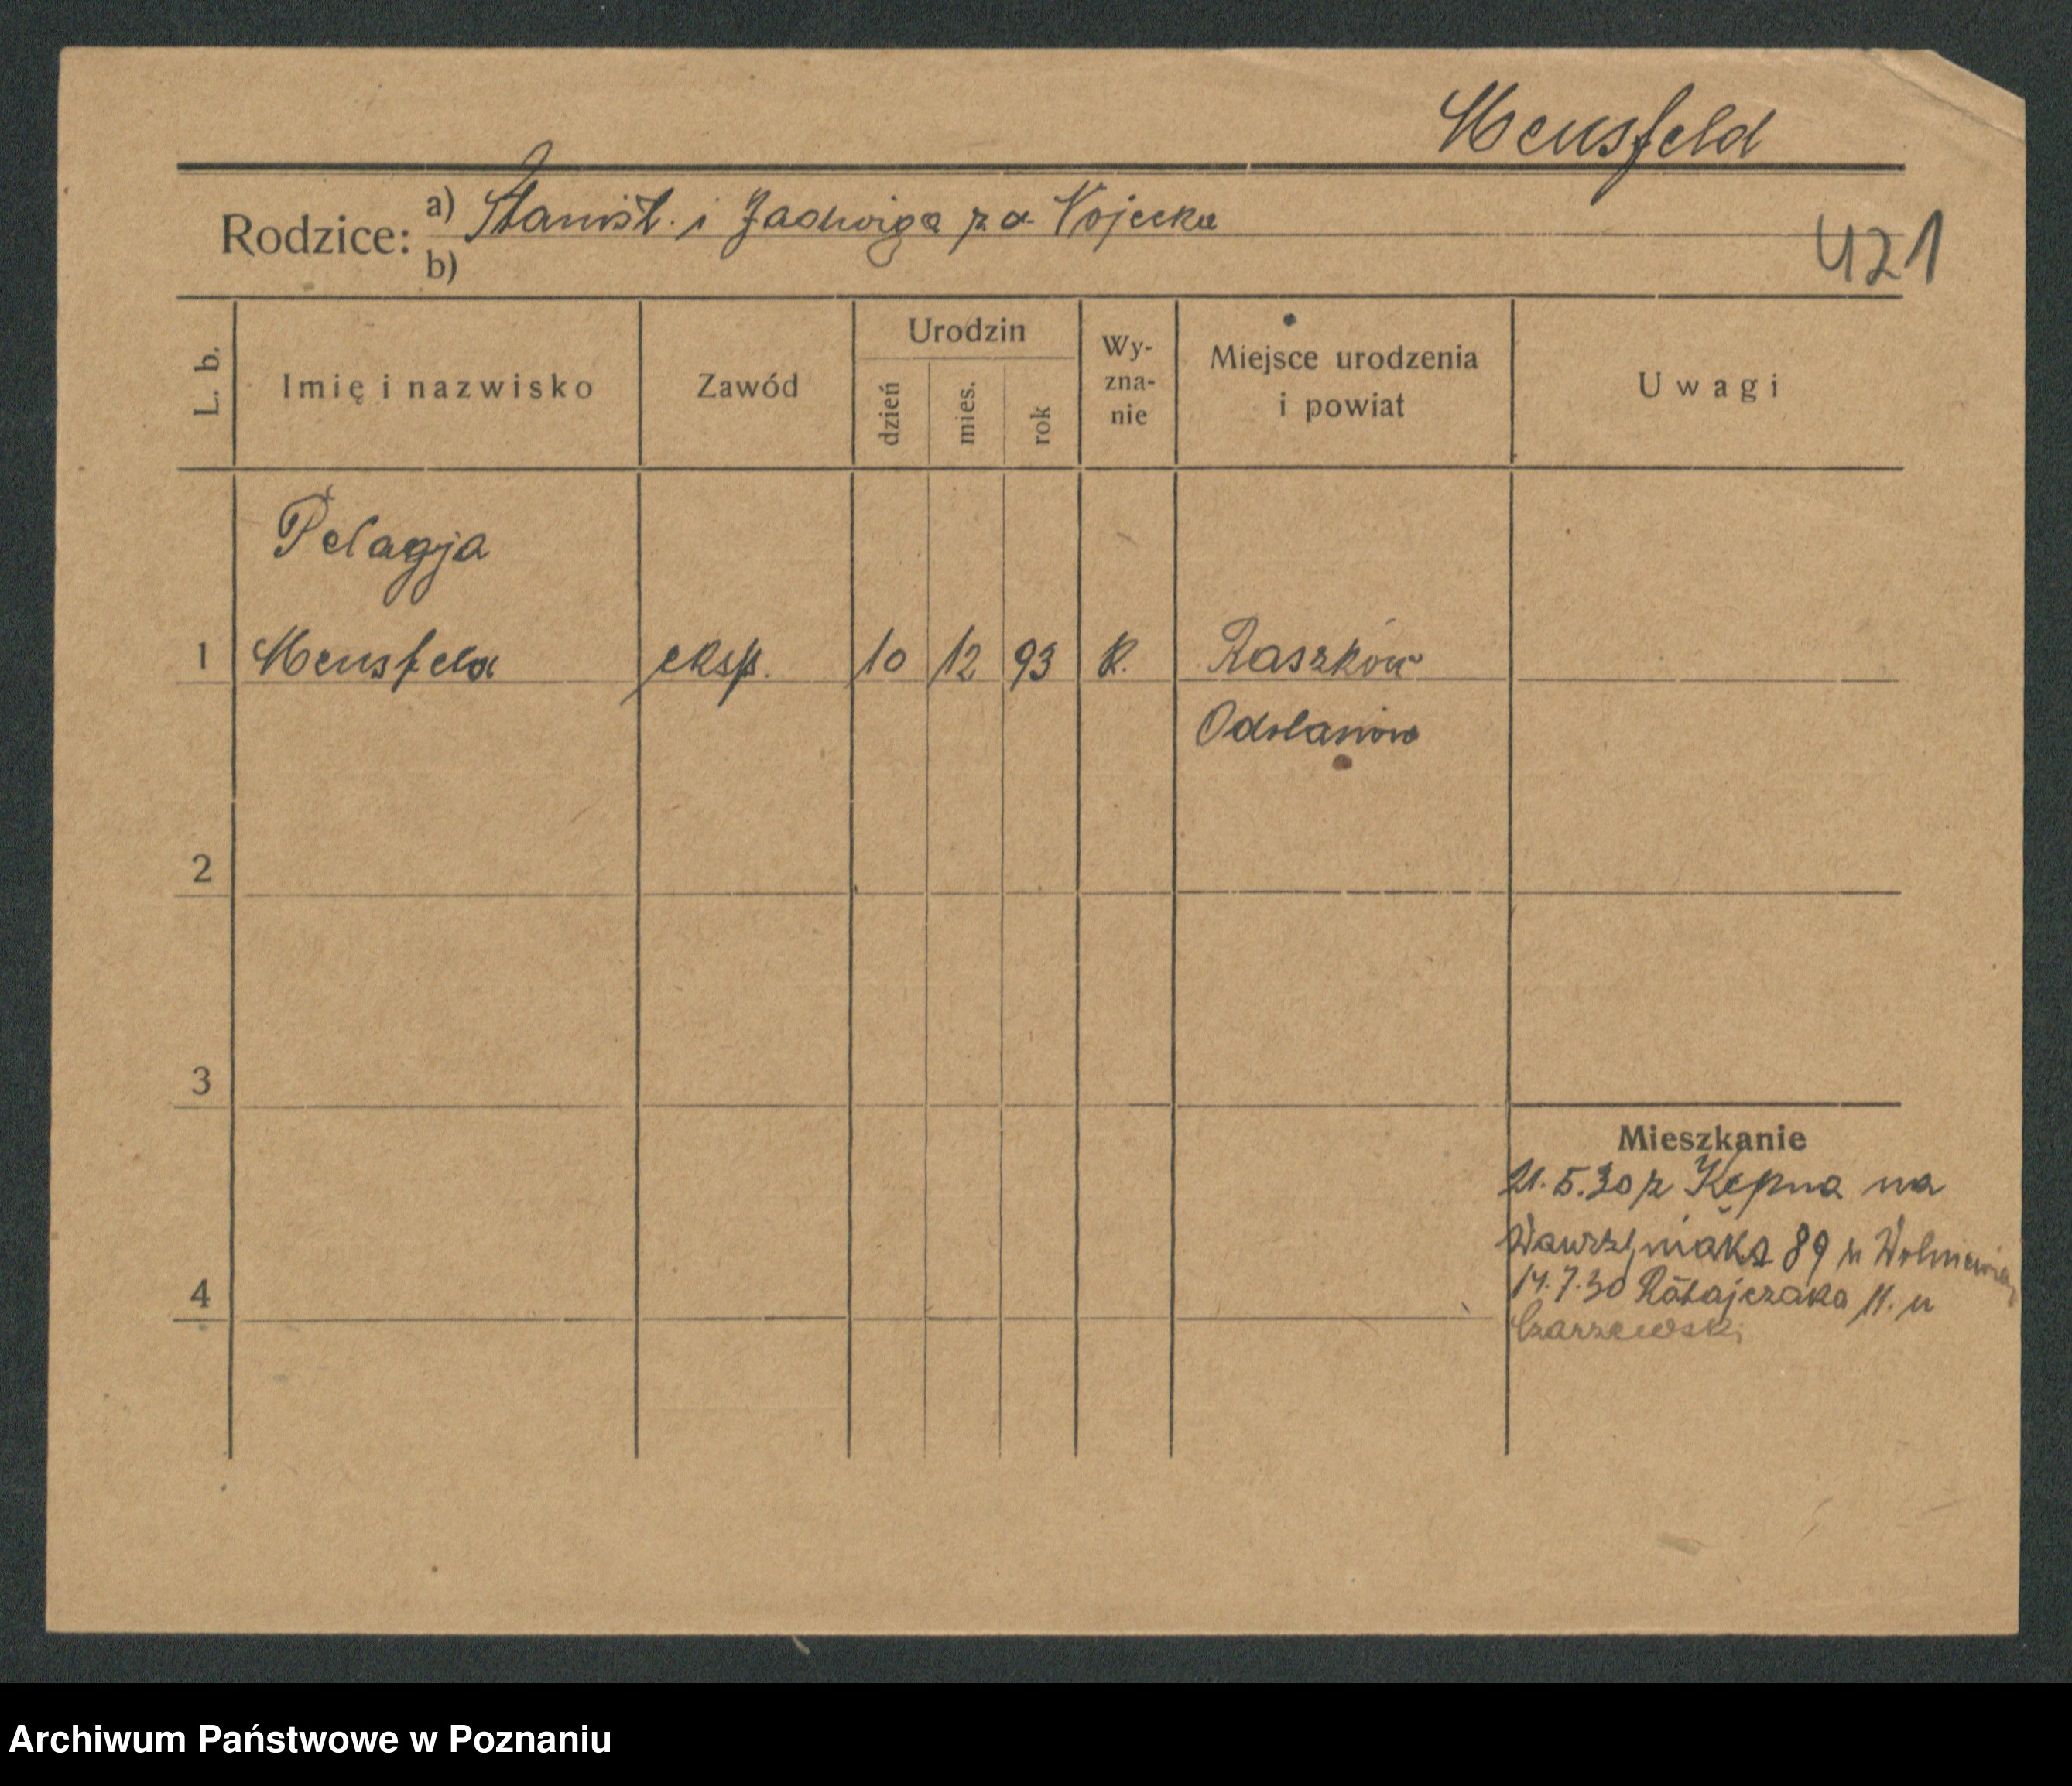 Meusfeld
Rodzice: a) Stanisł. i Jadwiga z d. Nojecka
b)
421
L. b.
Imię i nazwisko
Zawód
Urodzin
dzień
mies.
rok
Wy-
zna-
nie
Miejsce urodzenia
i powiat
Uwagi
Pelagja
1 Meusfeld eksp. 10 12 93 k. Raszków
Odolanów
2
3
Mieszkanie
21.5.30 z Kępna na
Wawrzyniaka 89 u
4
14.7.30 Ratajczaka 11. u
Czarzewski
Archiwum Państwowe w Poznaniu